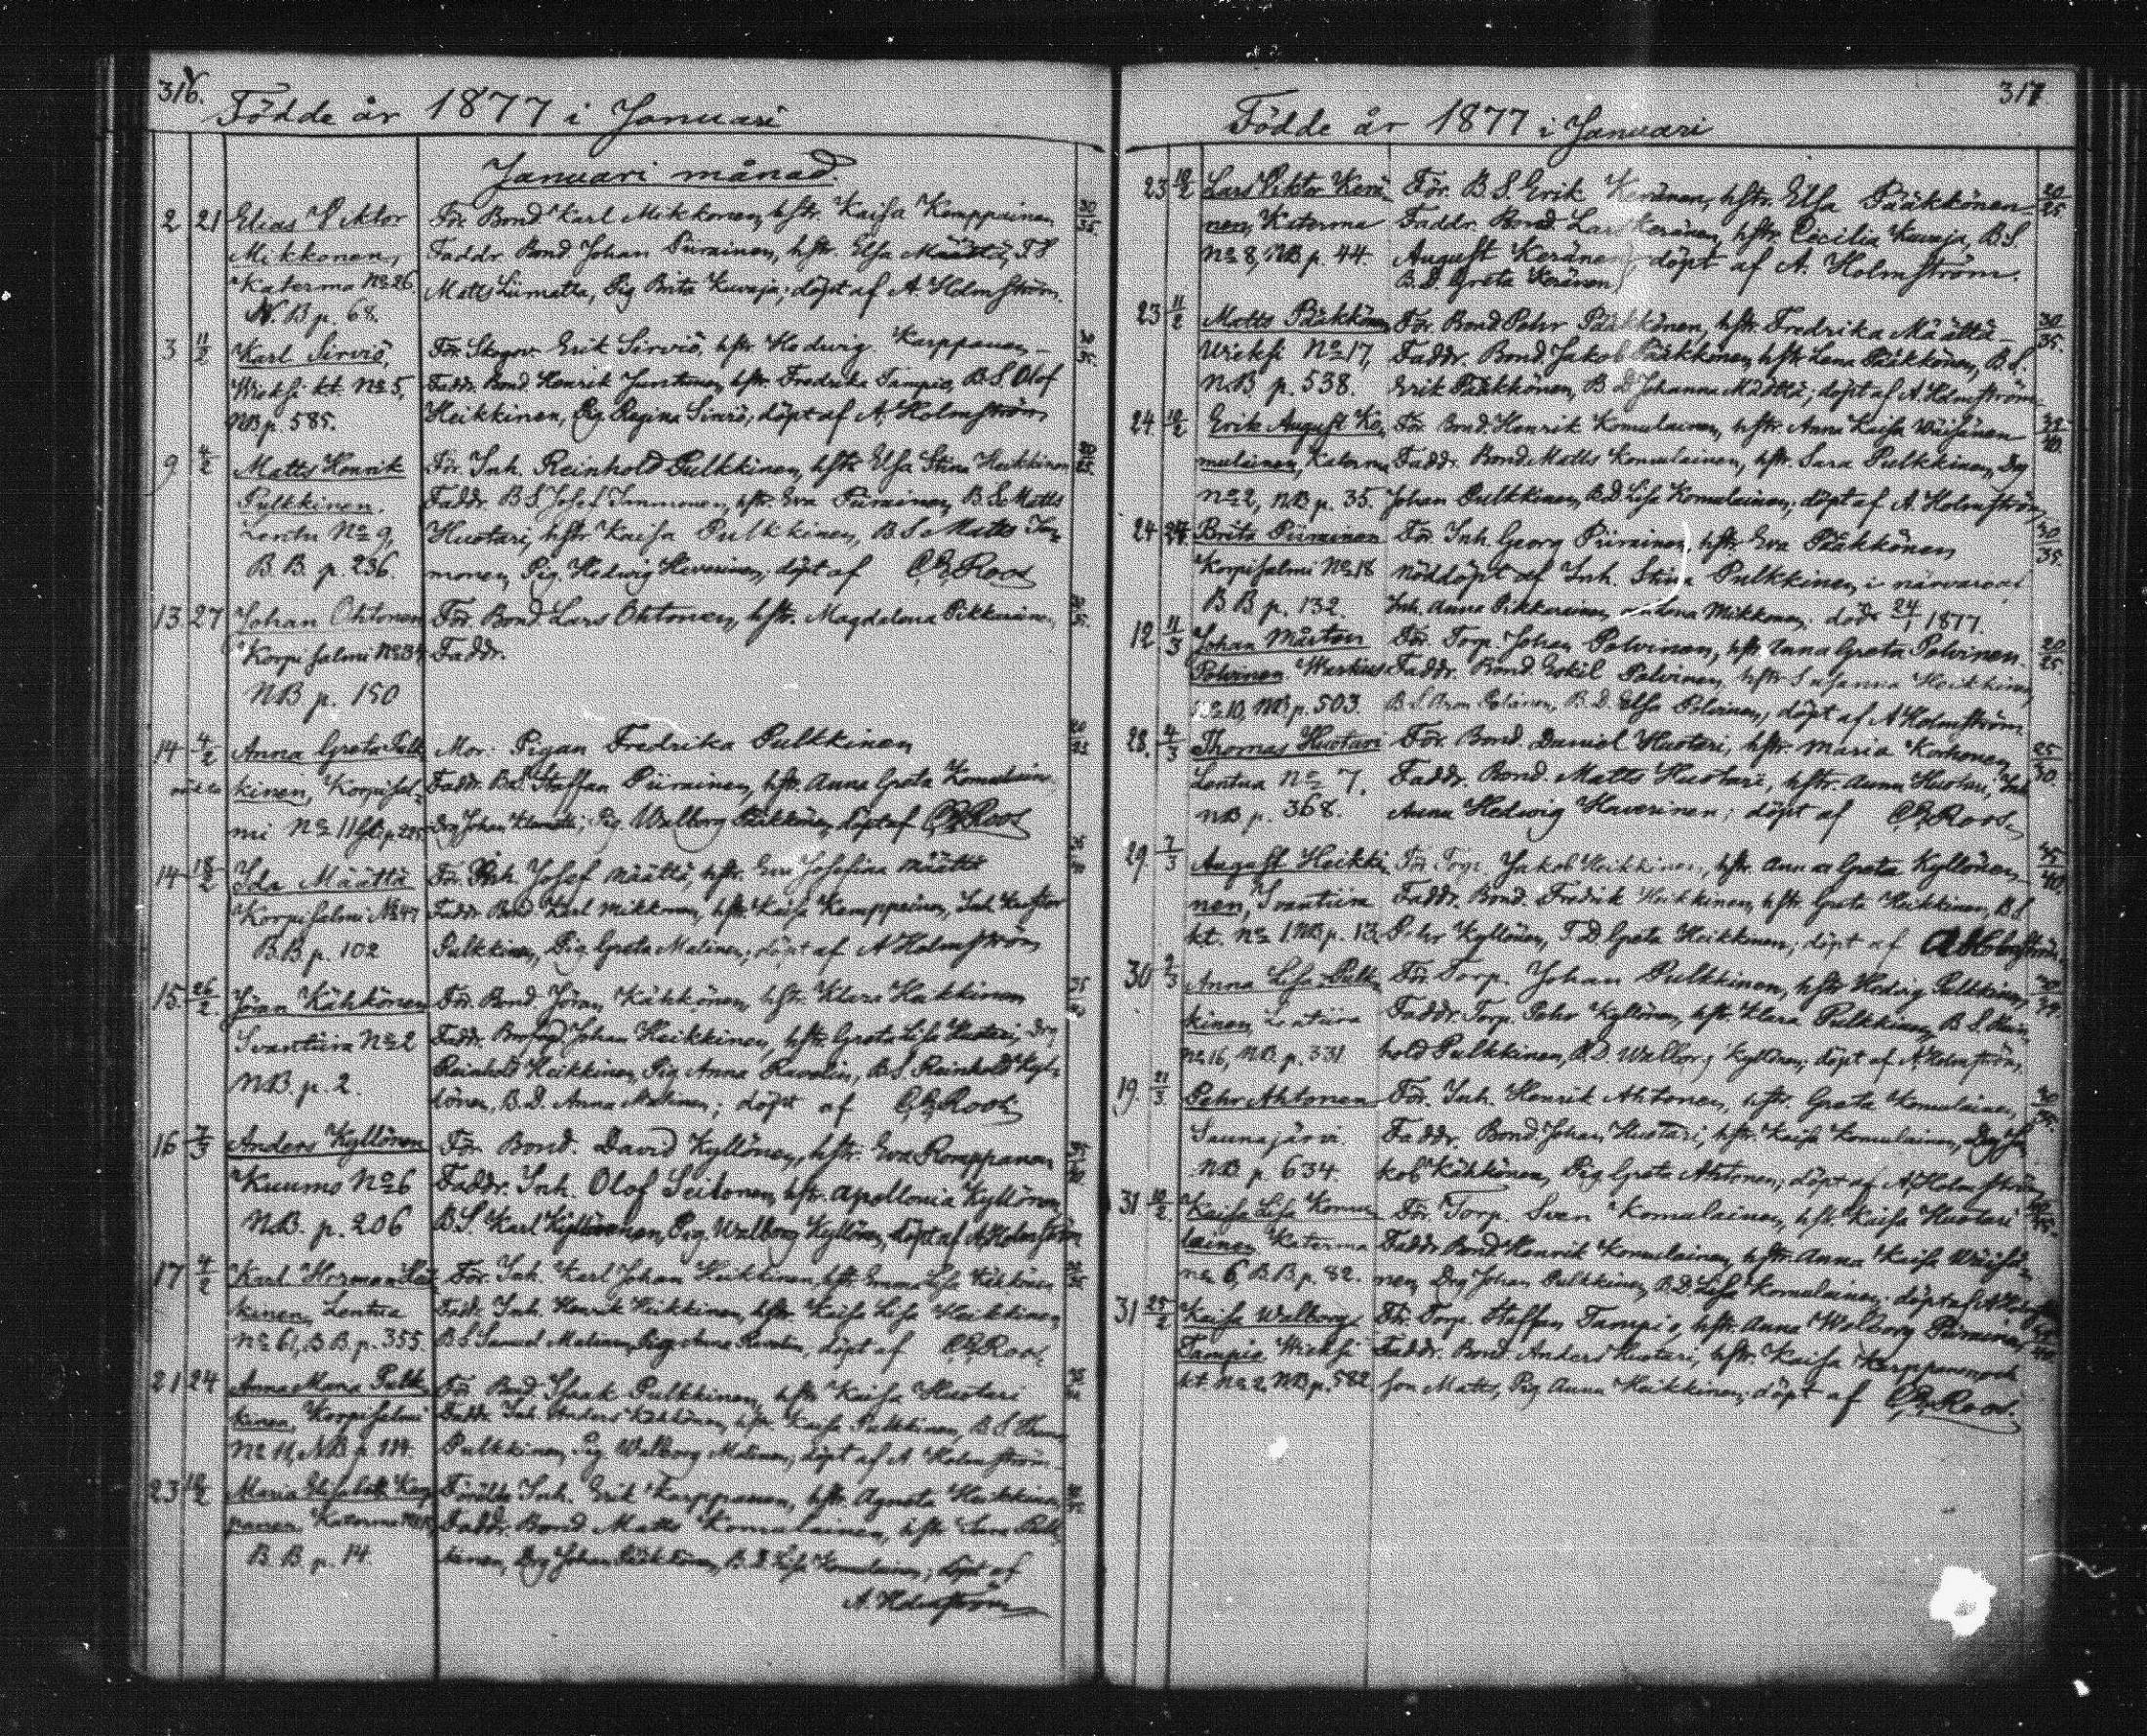 316.
Födde år 1877 i Januari
Januari månad.
2 21 Elias Viktor För. Bond Karl Mikkonen, hstr. Kaisa Kemppainen 30/35.
Mikkonen, Faddr. Bond Johan Piirainen, hstr. Elsa Määttä, TS
Katerma No 26 Matts Liimatta, Pig Brita Kuvaja; döpt af A. Holmström.
N. B p. 68.
3 11/2 Karl Sirviö, För. Skogov. Erik Sirviö, hstr. Hedwig Karppanen
Wieksi kt. No 5, Faddr. Bond Henrik Juntunen, hstr. Fredrika Tampio, B S Olof
NB p. 585. Heikkinen, Pig Regina Sirviö; döpt af A. Holmström
9 4/2 Matts Henrik För. Inh. Reinhold Pulkkinen, hstr. Elsa Stina Heikkinen
Pulkkinen. Faddr. B S Josef Timmonen, hstr. Eva Piirainen, B. S. Matts
Lentu No 9, Huotari, hstr. Kaisa Pulkkinen, B. S. Matts Tim-
B. B. p. 236. monen, Pig. Hedwig Heverinen; döpt af CERoos
13 27 Johan Ohtonen För. Bond Lars Ohtonen, hstr. Magdalena Pikkarainen
Korpisalmi No 34 Faddr.
NB p. 150
14 4/2 Anna Greta Pulk- Mor. Pigan Fredrika Pulkkinen
kinen, Korpisal- Faddr. B.S. Staffan Piirainen, hstr. Anna Greta Komulainen
mi No 11 Drg Johan Pig. Walborg Pääkkönen, döpt af CERoos
14 18/2 Ida Määttä För. Inh. Josef Määttä, hstr. Eva Josefina Määttä
Korpisalmi No 47 Faddr. Bond. Karl Mikkonen, hstr. Kaisa Kemppainen, Inh.
B.B p. 102 Pulkkinen, Pig. Greta Malinen; döpt af A Holmström
15 26/2 Jöran Kähkönen För. Bond Jöran Kähkönen, hstr. Klara Heikkinen
Ivantiira No 2 Faddr. Johan Heikkinen, hstr. Greta Lisa Huotari, Drg
NB. p. 2. Reinhold Heikkinen, Pig Anna Ravelin, B S. Reinhold Kyl-
lönen, B. D. Anna Malinen; döpt af CERoos
16 7/3 Anders Kyllönen För Bond. David Kyllönen, hstr. Eva Romppanen
Kuumo No 6 Faddr. Inh. Olof Seilonen, hstr. Apollonia Kyllönen,
NB. p. 206 B.S. Karl Kyllönen, Pig. Walborg Kyllönen, döpt af A Holmström
17 4/2 Karl Herman Heik- För. Inh. Karl Johan Heikkinen, hstr. Emma Lisa Kähkönen
kinen, Lentua Fadr. Inh. Henrik Heikkinen, hstr. Kaisa Lisa Heikkinen,
No 61, B.B. p. 355. B.S. Samuel Malinen, Pig Anna Ravelin, döpt af CERoos
21 24 Anna Maria Pulk- För. Bond Isaak Pulkkinen, hstr Kaisa Huotari
kinen, Korpisalmi Faddr. Inh. Anders Kähkönen, hstr. Kaisa Pulkkinen, B S
No 11, NB p. 114. Pulkkinen, Pig. Walborg Malinen; döpt af A Holmström
23 Maria Elisabet Karp- Föräldr. Inh. Erik Karppanen, hstr. Agneta Heikkinen
panen, Katerma Faddr. Bond. Matts Komulainen, hstr Sara Pulk-
B. B. p. 14. kinen, Drg Johan Pääkkönen, B. D. Lisa Komulainen; döpt af
A. Holmström
317
Födde år 1877 i Januari
23 10/2 Lars Viktor Kerä- För. B. S. Erik Keränen, hstr. Elsa Pääkkönen 20/25
nen, Katerma Faddr. Bond. Lars Keränen, hstr. Cecilia Kuvaja, B.S.
No 8, NB p. 44. August Keränen, döpt af A. Holmström.
B. D. Greta Keränen
23 11/2 Matts Pääkkönen För Bond Pehr Pääkkönen, hstr. Fredrika Määttä 30/35.
Wieksi No 17, Faddr. Bond. Jakob Pääkkönen, hstr. Lena Pääkkönen, B. S.
N.B. p. 538. Erik Pääkkönen, B D Johanna Määttä; döpt af A. Holmström
24 10/2 Erik August Ko- För. Bond. Henrik Komulainen, hstr. Anna Kaisa Wäisänen
mulainen, Katerma Faddr. Bond. Matts Komulainen, hstr. Sara Pulkkinen, Drg
No 2, NB p. 35. Johan Pulkkinen, B.D. Lisa Komulainen; döpt af A. Holmström
24 24. Brita Piirainen För. Inh. Georg Piirainen, hstr. Eva Pääkkönen 30/35.
Korpisalmi No 18 nöddöpt af Inh. Stina Pulkkinen i närvaro af
B B p. 132. Inh. Anna Pikkarainen, Mikkonen, död 24/1 1877.
12 11/3 Johan Mårten För. Torp. Johan Polvinen, hstr. Anna Greta Polvinen. 20/25.
Polvinen Wartius Faddr. Bond. Eskil Polvinen, hstr. Susanna Heikkinen,
No 10, NB p. 503. B. S. Aron Polvinen, B. D. Elsa Polvinen; döpt af A Holmström
28. 4/3 Thomas Huotari För. Bond. Daniel Huotari, hstr. Maria Korhonen 25/30.
Lentua No 7. Faddr. Bond. Matts Huotari, hstr. Anna Huotari, Inh
NB p. 368. Anna Hedwig Haverinen; döpt af CERoos
29. 7/3 August Heikki- För. Torp. Jakob Heikkinen, hstr. Anna Greta Kyllönen,
nen, Ivantiira Faddr. Bond. Fredrik Heikkinen, hstr. Greta Heikkinen, B S
kt. No 1. NB p. 13. Pehr Kyllönen, T. D. Greta Heikkinen; döpt af A Holmström.
30 9/3 Anna Lisa Pulk- För. Torp. Johan Pulkkinen, hstr Hedvig Pulkkinen,
kinen, Lentiira Faddr. Torp. Pehr Kyllönen, hstr. Klara Pulkkinen, B. S. Rein-
No 16, NB. p. 331 hold Pulkkinen, B. D. Walborg Kyllönen; döpt af A. Holmström.
19. 21/3 Pehr Ahtonen För. Inh. Henrik Ahtonen, hstr. Greta Komulainen,
Saunajärvi. Faddr. Bond. Johan Huotari, hstr. Kaisa Komulainen, Drg Ja-
NB p. 634. kob Kähkönen, Pig Greta Ahtonen; döpt af A. Holmström
31 10/2. Kaisa Lisa Komu- För. Torp. Sven Komulainen, hstr. Kaisa Huotari
lainen, Katerma Faddr. Bond Henrik Komulainen, hstr. Anna Kaisa Wäisä-
No 6, B B p. 82. nen, Drg Johan Pulkkinen, B.D. Lisa Komulainen; döpt af A Holmström
31 25/2 Kaisa Walborg För. Torp. Staffan Tampio, hstr. Anna Walborg Piirainen,
Tampio, Wieksi Faddr. Bond. Anders Huotari, hstr. Kaisa Karppanen och
kt. No 2. NB p. 582. son Matts, Pig Anna Heikkinen; döpt af CERoos.